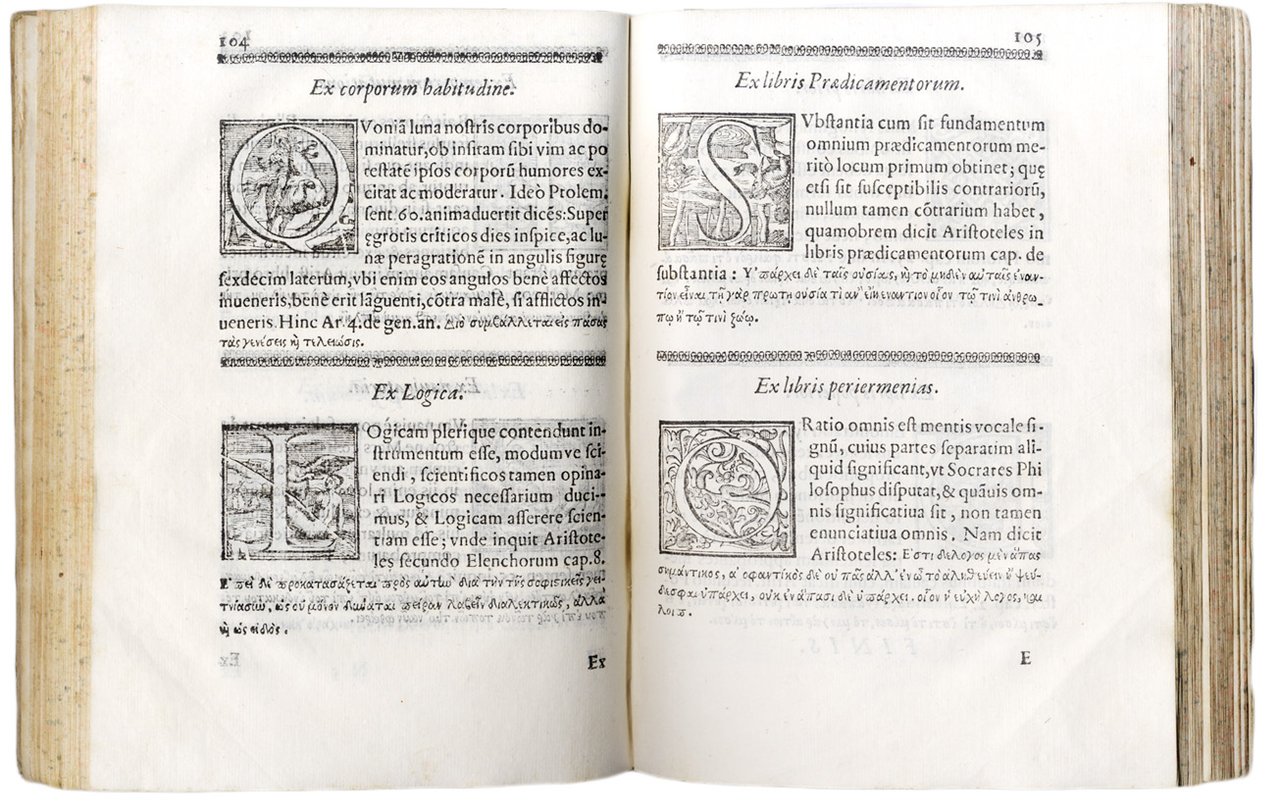 104
Ex corporum habitudine.
QVoniā luna nostris corporibus do-
minatur, ob insitam sibi vim ac po
testatē ipsos corporū humores ex-
citat ac moderatur. Ideò Ptolem.
sent. 60. animaduertit dicēs: Super
ęgrotis criticos dies inspice, ac lu-
næ peragrationē in angulis figurę
sexdecim laterum, vbi enim eos angulos bene affectos
inueneris, bene erit lāguenti, cōtra male, si afflictos in-
ueneris. Hinc Ar. 4. de gen. an. Διὸ συμβάλλεται εἰς πάσας
τὰς γενέσεις ἢ τελειώσις.
Ex Logica.
LOgicam plerique contendunt in-
strumentum esse, modumve sci-
endi, scientificos tamen opina-
ri Logicos necessarium duci-
mus, & Logicam asserere scien-
tiam esse; vnde inquit Aristote-
les secundo Elenchorum cap. 8.
δὲ προκατασ πρὸς διὰ τὴν τῆς σοφιστικῆς γει-
τνιασιν, ὡς οὐ μόνον δύναται πεῖραν λαβεῖν διαλεκτικῶς, ἀλλὰ
ὡς εἰδὸς.
Ex
105
Ex libris Prædicamentorum.
SVbstantia cum sit fundamentum
omnium prædicamentorum me-
ritò locum primum obtinet; quę
etsi sit susceptibilis contrariorū,
nullum tamen cōtrarium habet,
quamobrem dicit Aristoteles in
libris prædicamentorum cap. de
substantia: Υ'πάρχει δὲ ταῖς οὐσίαις, ἢ τὸ μηδὲν αὐταῖς ἐναν-
τίον εἶναι τῇ γὰρ πρώτῃ οὐσία τὶ ἂν εἴη ἐναντίον οἷον τῷ τινὶ ἀνθρώ_
πῳ ἢ τῷ τινὶ ζώῳ.
Ex libris periermenias.
ORatio omnis est mentis vocale si-
gnū, cuius partes separatim ali-
quid significant, vt Socrates Phi
losophus disputat, & quāuis om-
nis significatiua sit, non tamen
enunciatiua omnis. Nam dicit
Aristoteles: Ε'στι δὲ λόγος μὲν ἅπας
σημαντικὸς, ἀ'οφαντικὸς δὲ οὐ πᾶς ἀλλ' ἐν ᾧ τὸ ἀληθεύειν ἢ ψεύ-
δεσθαι ὑπάρχει, οὐκ ἐν ἅπασι δὲ ὑπάρχει. οἷον ἡ εὐχὴ λόγος,
E